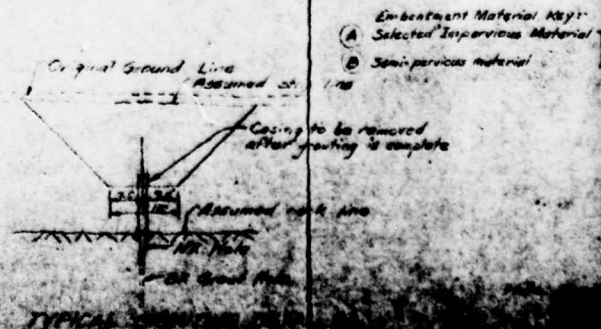 Embankment Material Key:
A Selected Impervious Material
B Semi-pervious material
Original Ground Line
Assumed line
Casing to be removed
after grouting is complete
Assumed rock line
NX Hole
Hole
TYPICAL